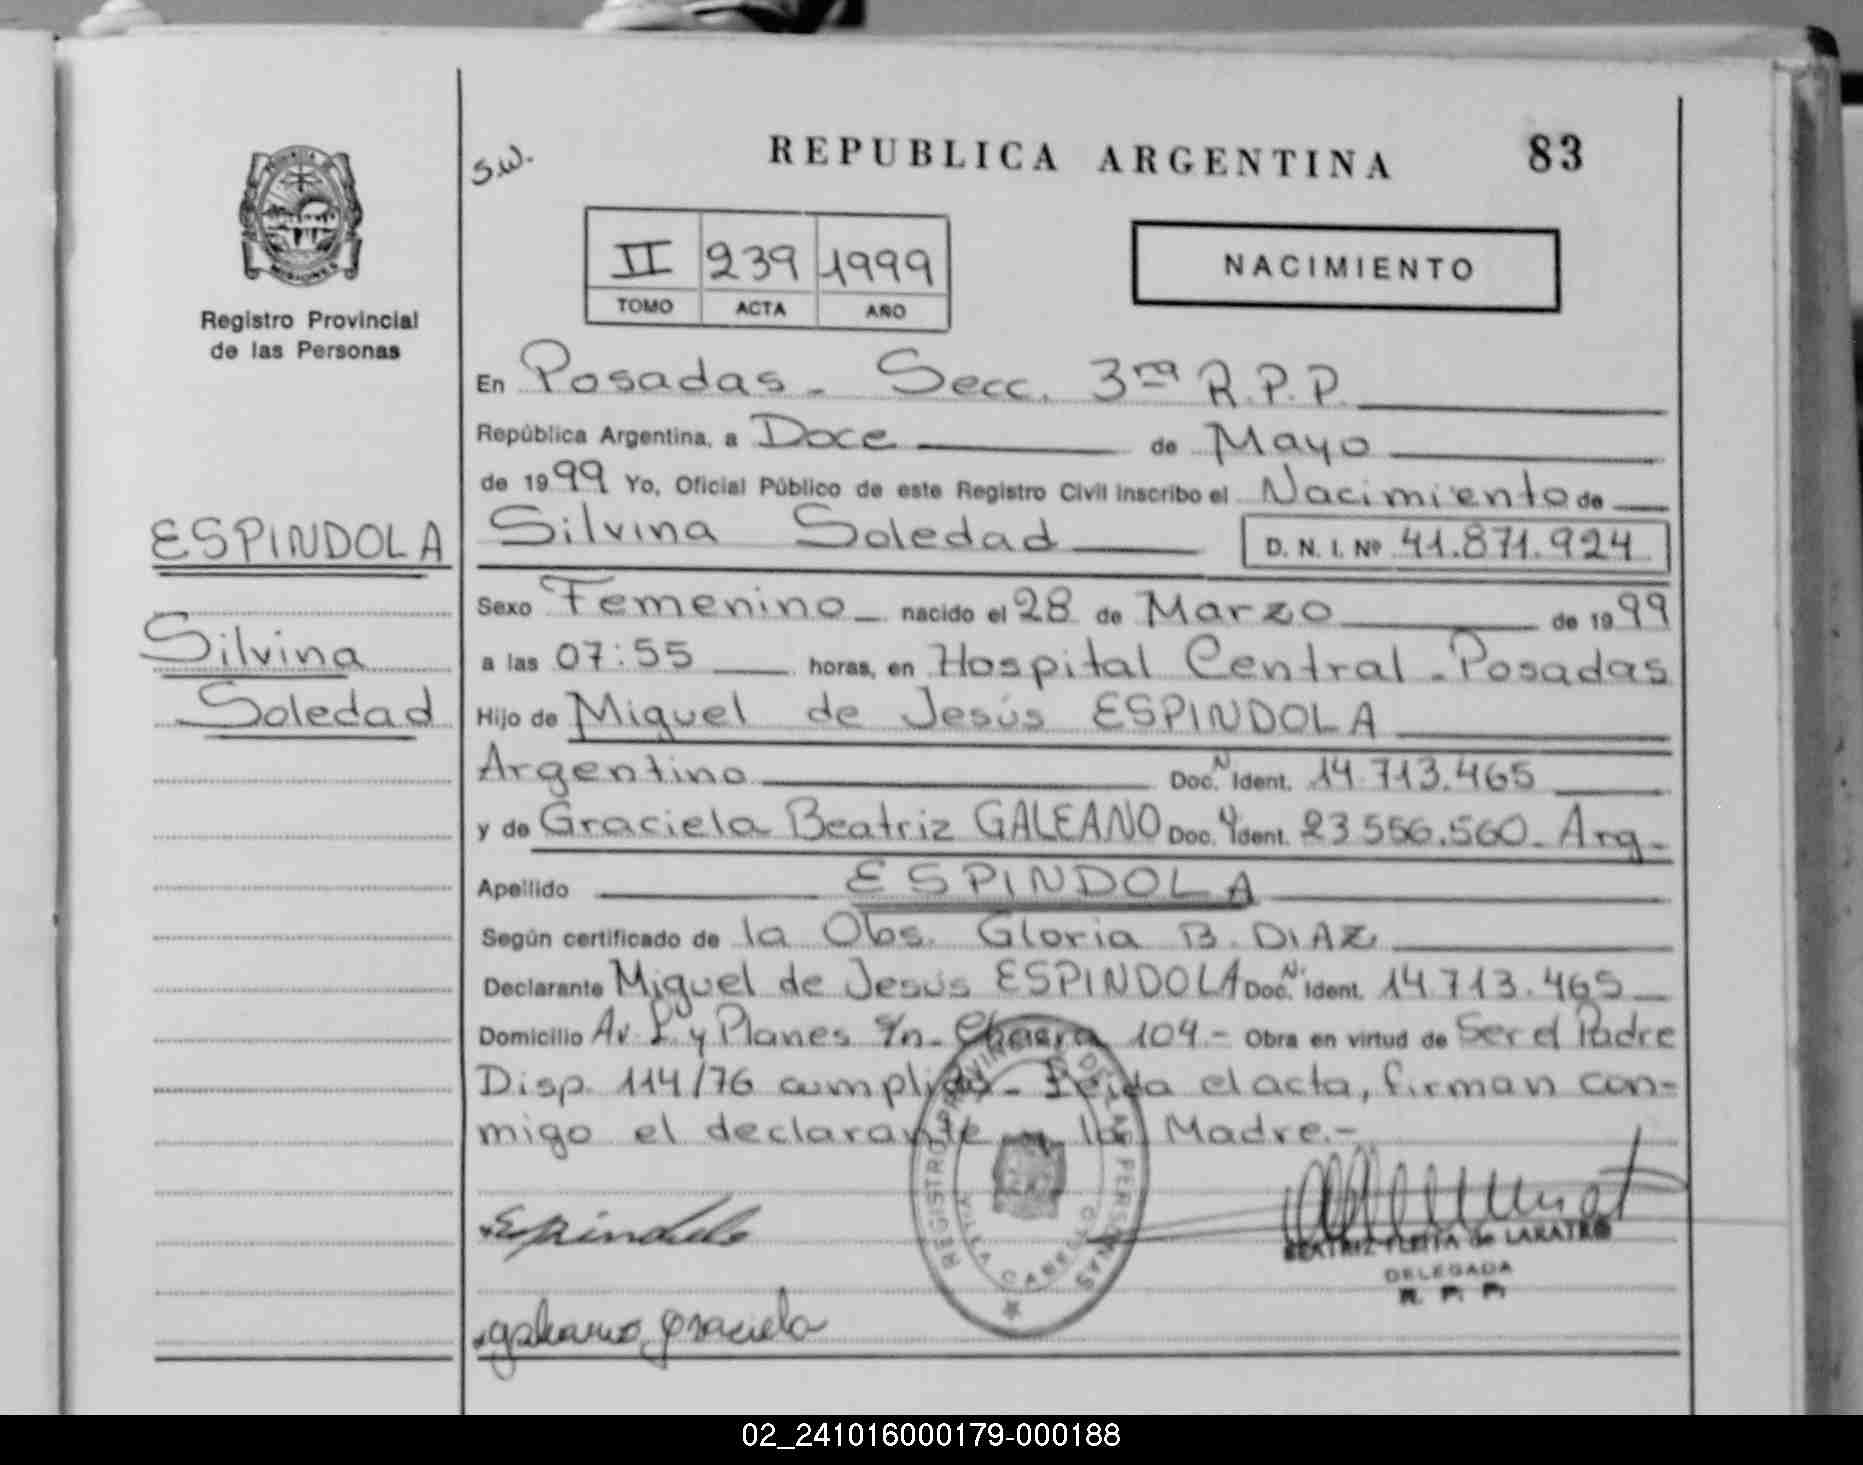 REPUBLICA ARGENTINA
83
S.W.
MISIONES
Registro Provincial
de las Personas
II 239 1999
TOMO ACTA AÑO
NACIMIENTO
En Posadas - Secc. 3ra R.P.P.
República Argentina, a Doce de Mayo
de 1999 Yo, Oficial Público de este Registro Civil inscribo el Nacimiento de
ESPINDOLA
Silvina
Soledad
Silvina Soledad D. N. I. Nº 41.871.924
Sexo Femenino nacido el 28 de Marzo de 1999
a las 07:55 horas, en Hospital Central - Posadas
Hijo de Miguel de Jesús ESPINDOLA
Argentino Doc. N Ident. 14.713.465
y de Graciela Beatriz GALEANO Doc. Ident. 23.556.560 - Arg -
Apellido ESPINDOLA
Según certificado de la Obs. Gloria B. DIAZ
Declarante Miguel de Jesús ESPINDOLA Doc. N Ident. 14.713.465
Domicilio Av. L. y Planes s/n - Chacra 104 - Obra en virtud de Ser el Padre
Disp. 114/76 cumplida - Leida el acta, firman con-
migo el declarante y la Madre.-
REGISTRO PROVINCIAL DE LAS PERSONAS
VILLA CABELLO
Espindola
BEATRIZ FLEITA de LARATRO
DELEGADA
R. P. P.
galeano graciela
02_241016000179-000188